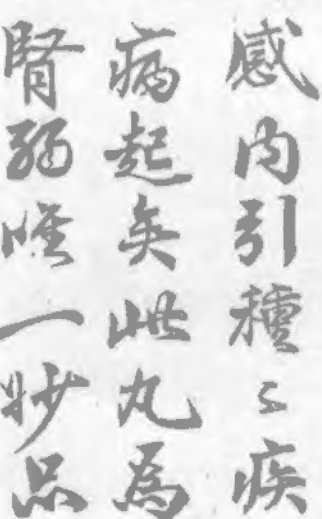 感内引種〻疾
病起矣此丸為
腎弱唯一妙品